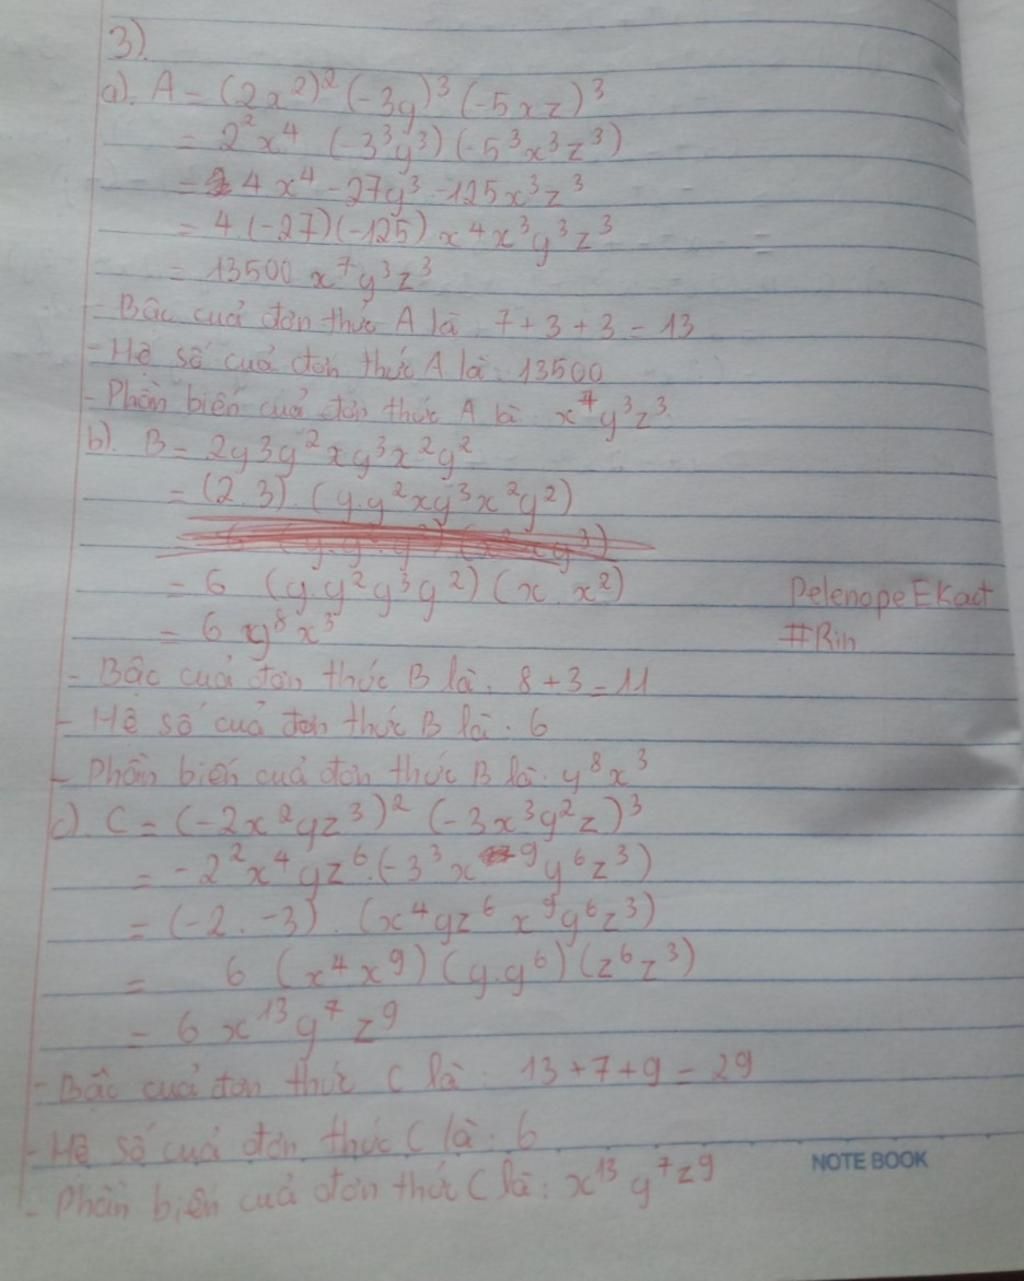 3).
a). A = (2x²)² (-3y)³ (-5xz)³
= 2²x⁴ (-3³y³) (-5³x³z³)
= 4x⁴ -27y³ -125x³z³
= 4 (-27) (-125) x⁴x³y³z³
= 13500 x⁷y³z³
- Bâc cuả đơn thức A là 7 + 3 + 3 = 13
- Hệ số cuả đơn thức A là 13500
- Phần biến cuả đơn thức A là x⁷y³z³
b). B = 2y3y²xy³x²y²
= (2.3).(y.y²xy³x²y²)
= 6 (y.y²y³y²) (x x²)
= 6 y⁸x³
- Bâc cuả đơn thức B là. 8 + 3 = 11
- Hệ số cuả đơn thức B là. 6
- Phần biến cuả đơn thức B là. y⁸x³
c). C = (-2x²yz³)² (-3x³y²z)³
= -2²x⁴yz⁶.(-3³x⁹y⁶z³)
= (-2.-3).(x⁴yz⁶x⁹y⁶z³)
= 6 (x⁴x⁹) (y.y⁶) (z⁶z³)
= 6x¹³y⁷z⁹
- Bâc cuả đơn thức C là. 13 + 7 + 9 = 29
- Hệ số cuả đơn thức C là. 6
- Phần biến cuả đơn thức C là: x¹³y⁷z⁹
Pelenope EKact
#Rin
NOTE BOOK